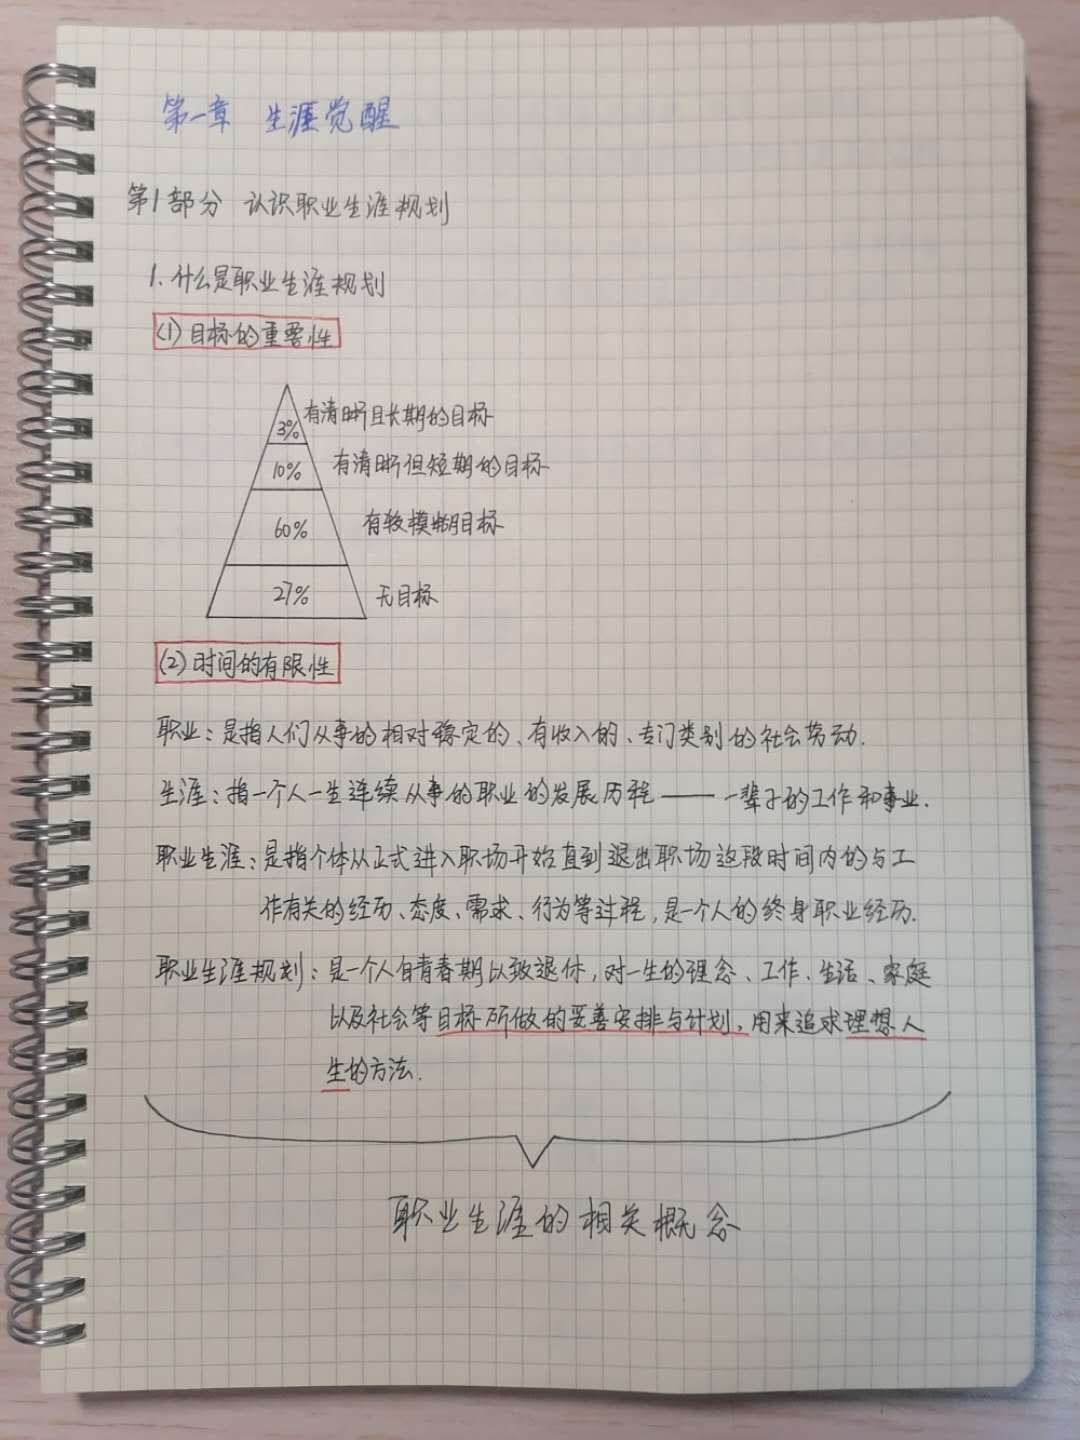 第一章 生涯觉醒
第1部分 认识职业生涯规划
1.什么是职业生涯规划
(1)目标的重要性
3% 有清晰且长期的目标
10% 有清晰但短期的目标
60% 有较模糊目标
27% 无目标
(2)时间的有限性
职业:是指人们从事的相对稳定的、有收入的、专门类别的社会劳动.
生涯:指一个人一生连续从事的职业的发展历程——一辈子的工作和事业.
职业生涯:是指个体从正式进入职场开始直到退出职场这段时间内的与工
作有关的经历、态度、需求、行为等过程,是一个人的终身职业经历.
职业生涯规划:是一个人自青春期以致退休,对一生的理念、工作、生活、家庭
以及社会等目标所做的妥善安排与计划,用来追求理想人
生的方法.
职业生涯的相关概念